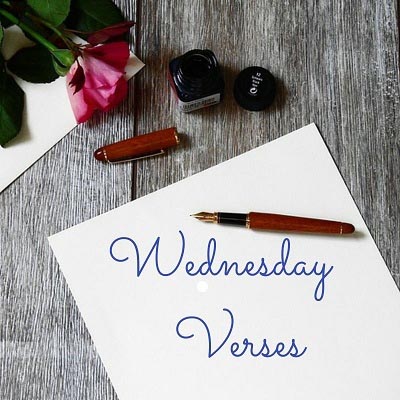 Wednesday
Verses